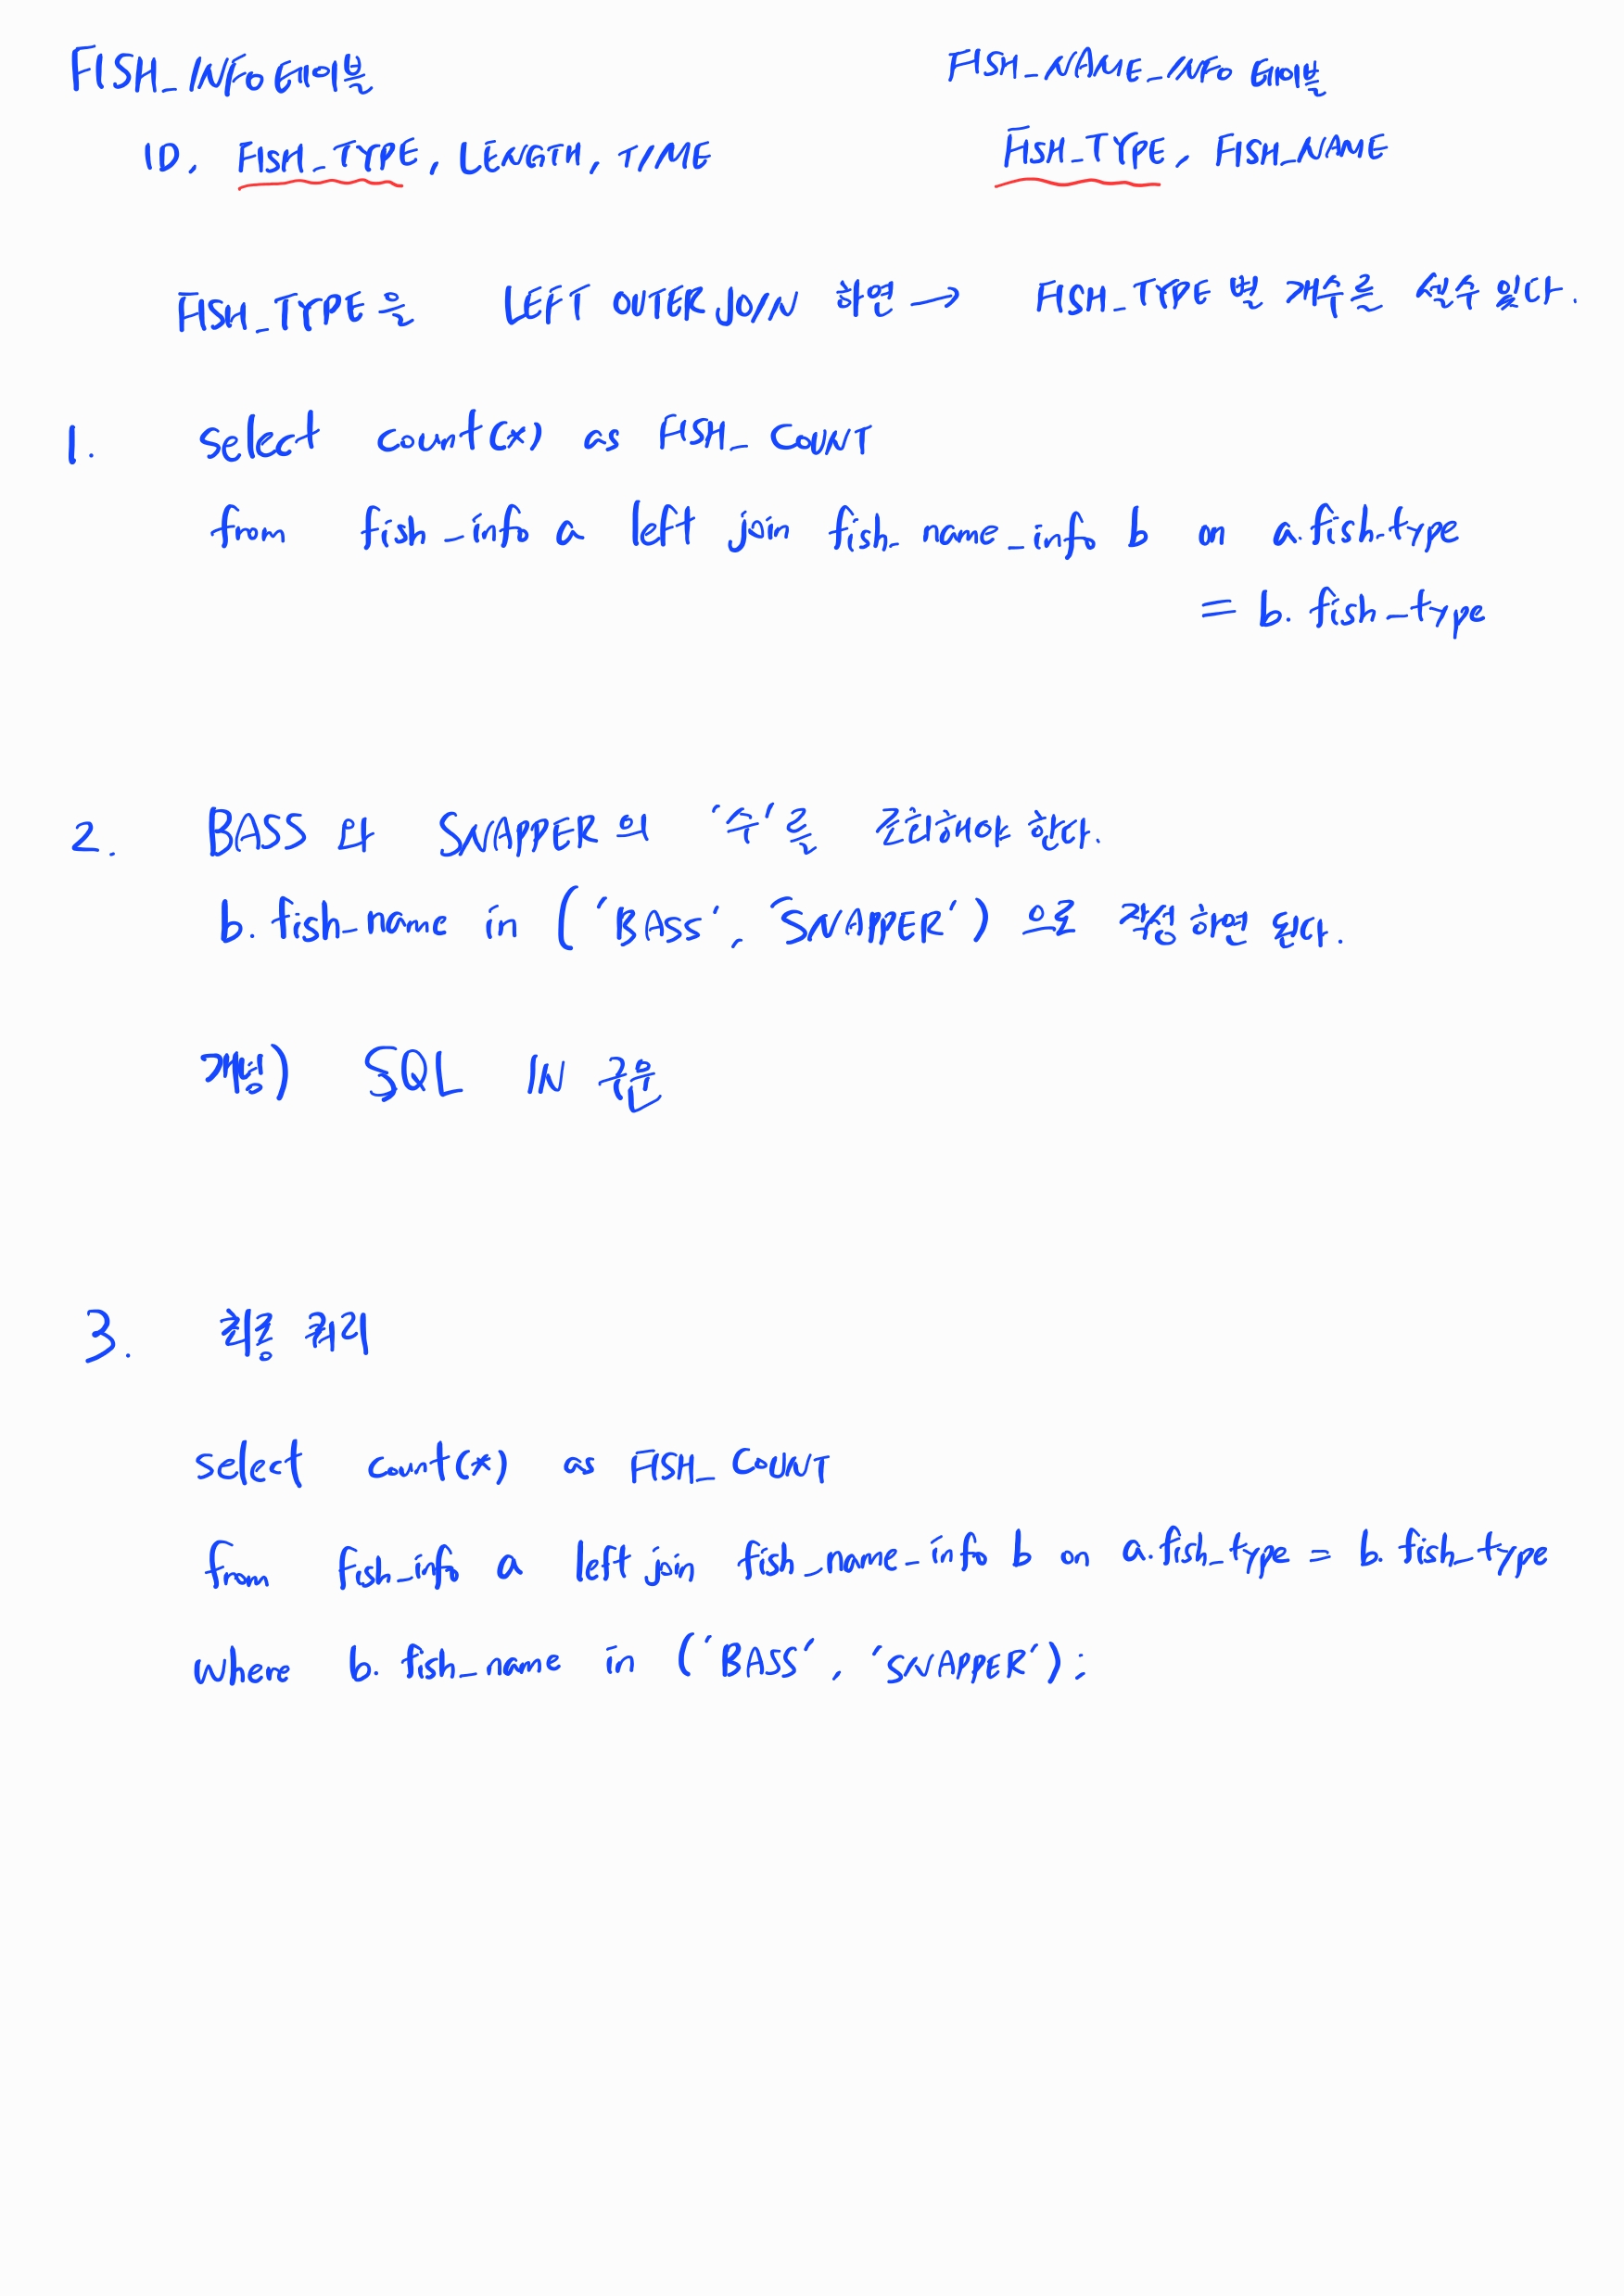 FISH_INFO 테이블
FISH_NAME_INFO 테이블
ID, FISH_TYPE, LENGTH, TIME
FISH_TYPE, FISH_NAME
FISH_TYPE을 LEFT OUTER JOIN 하면 → FISH_TYPE 별 개수를 셀수 있다.
1. select count(*) as FISH_COUNT
from fish_info a left join fish_name_info b on a.fish_type
= b.fish_type
2. BASS 와 SNAPPER의 '수'를 출력해야 한다.
b.fish_name in ('BASS', 'SNAPPER') 으로 작성하면 된다.
개념) SQL IN 구문
3. 최종 쿼리
select count(*) as FISH_COUNT
from fish_info a left join fish_name_info b on a.fish_type = b.fish_type
where b.fish_name in ('BASS', 'SNAPPER');